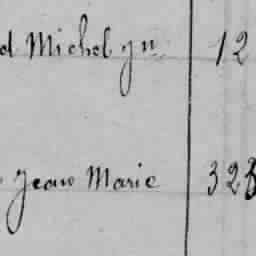 d Michel yn 12
Jean Marie 328